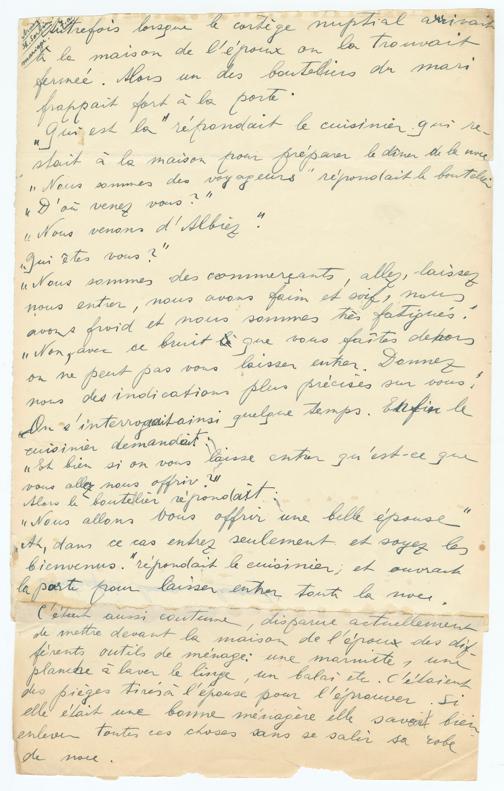 Autrefois lorsque le cortège nuptial arrivait
à la maison de l'époux on la trouvait
fermée. Alors un des bouteliers du mari
frappait fort à la porte.
"Qui est là" répondait le cuisinier qui re-
stait à la maison pour préparer le dîner de la noce
"Nous sommes des voyageurs" répondait le boutelier
"D'où venez vous?"
"Nous venons d'Albiez."
"Qui êtes vous?"
"Nous sommes des commerçants, allez, laissez
nous entrer, nous avons faim et soif, nous
avons froid et nous sommes très fatigués!
"Non, avec ce bruit que vous faites dehors
on ne peut pas vous laisser entrer. Donnez
nous des indications plus précises sur vous!
On s'interrogait ainsi quelque temps. Enfin le
cuisinier demandait:
"Et bien si on vous laisse entrer qu'est-ce que
vous allez nous offrir?"
Alors le boutelier répondait:
"Nous allons vous offrir une belle épouse"
Ah, dans ce cas entrez seulement et soyez les
bienvenus." répondait le cuisinier; et ouvrait
la porte pour laisser entrer toute la noce.
C'était aussi coutume, disparue actuellement
de mettre devant la maison de l'époux des dif
férents outils de ménage: une marmite, une
planche à laver le linge, un balai etc. C'étaient
des pièges tirés à l'épouse pour l'éprouver. Si
elle était une bonne ménagère elle savait bien
enlever toutes ces choses sans se salir sa robe
de noce.